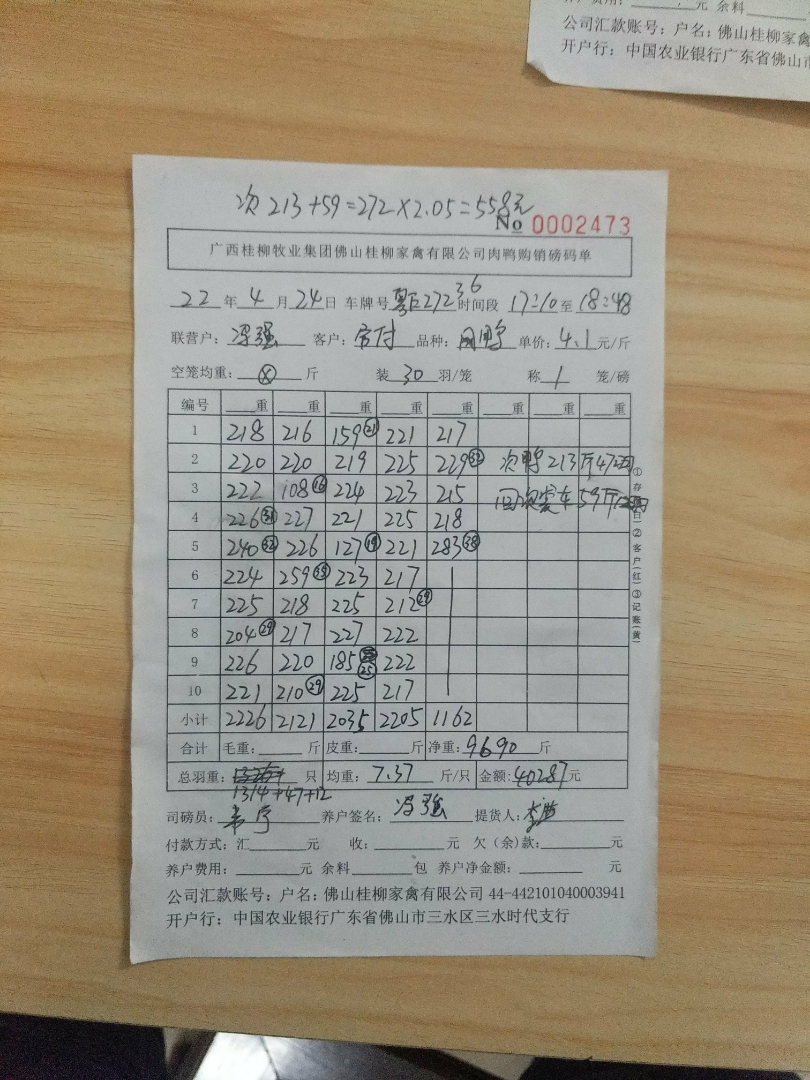 费用: 元 余料
公司汇款账号: 户名: 佛山桂柳家禽
开户行: 中国农业银行广东省佛山市
次 213+59=272×2.05=558元
No 0002473
广西桂柳牧业集团佛山桂柳家禽有限公司肉鸭购销磅码单
22 年 4 月 24 日 车牌号 27236 时间段 17:10 至 18:48
联营户: 冯强 客户: 品种: 鸭 单价: 4.1 元/斤
空笼均重: ⊗ 斤 装 30 羽/笼 称 1 笼/磅
编号 重 重 重 重 重 重 重 重
1 218 216 159 (21) 221 217
2 220 220 219 225 229 (32) 次鸭 213斤47
3 222 108 (16) 224 223 215 回 车 59斤
4 226 (31) 227 221 225 218
5 240 (32) 226 127 (19) 221 283 (38)
6 224 259 (35) 223 217
7 225 218 225 212 (29)
8 204 (29) 217 227 222
9 226 220 185 (25) 222
10 221 210 (29) 225 217
小计 2226 2121 2035 2205 1162
合计 毛重: 斤 皮重: 斤 净重: 9690 斤
总羽重: 只 均重: 7.37 斤/只 金额: 40287 元
1314+47+12
司磅员: 养户签名: 冯强 提货人:
付款方式: 汇 元 收: 元 欠(余)款: 元
养户费用: 元 余料 包 养户净金额: 元
公司汇款账号: 户名: 佛山桂柳家禽有限公司 44-442101040003941
开户行: 中国农业银行广东省佛山市三水区三水时代支行
①存根(白)②客户(红)③记账(黄)